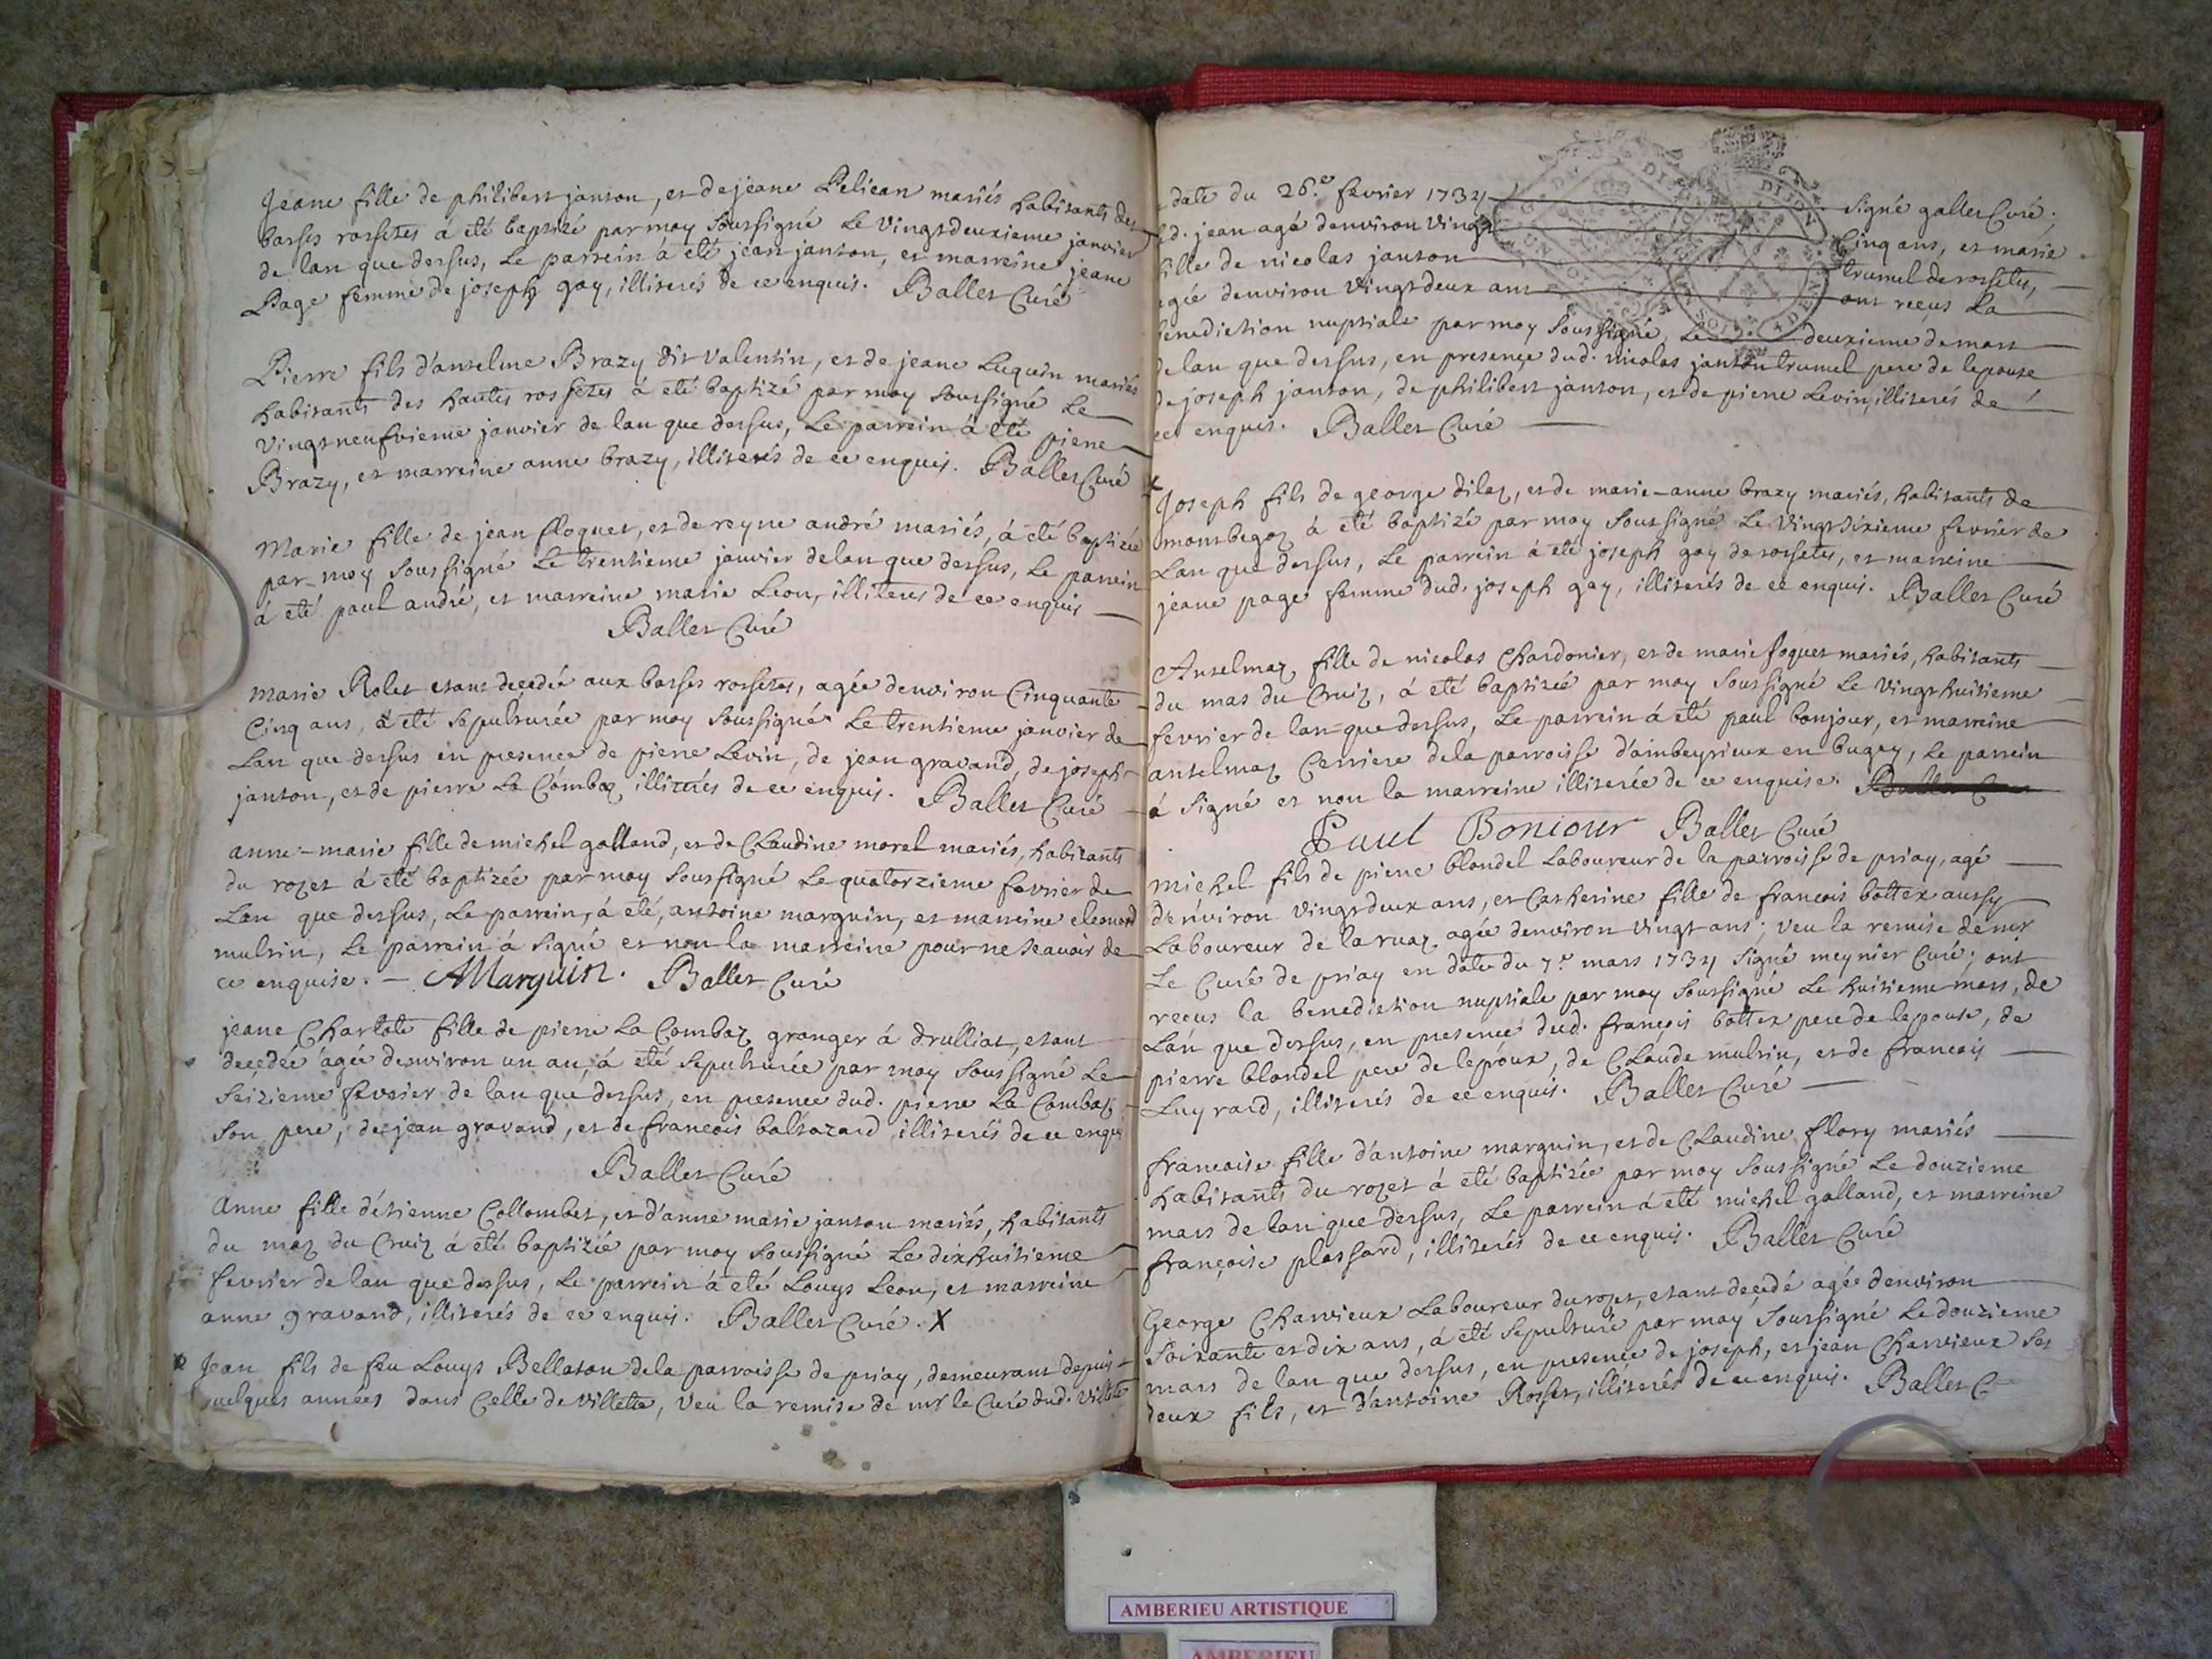 Jeane fille de philibert janton, et de jeane Pelican mariés habitants des
basses rossetes a eté baptizé par moy soussigné Le vingtdeuxieme janvier
de lan que dessus, Le parrein à eté jean janton, et marreine jeane
Page femme de joseph gay, illiterés de ce enquis. Ballet Curé
Pierre fils d'anselme Brazy dit valentin, et de jeane Luquin mariés
habitants des hautes rossetes á eté baptizé par moy soussigné Le
vingtneufvieme janvier de lan que dessus, Le parrein á eté pierre
Brazy, et marreine anne brazy, illiterés de ce enquis. Ballet Curé
Marie fille de jean floquet, et de reyne andré mariés, á eté baptizée
par moy soussigné Le trentieme janvier de lan que dessus, Le parrein
á eté paul andré, et marreine marie Leon, illiteres de ce enquis
Ballet Curé
Marie Rolet etant decedée aux basses rossetes, agée denviron Cinquante
Cinq ans, á eté sepulturée par moy soussigné Le trentieme janvier de
Lan que dessus en presence de pierre Levin, de jean gravand, de joseph
janton, et de pierre La Combaz illiterés de ce enquis. Ballet Curé
anne-marie fille de michel galland, et de Claudine morel mariés, habitants
du rozet á eté baptizée par moy soussigné Le quatorzieme fevrier de
Lan que dessus, Le parrein, á eté, antoine marguin, et marreine eleonord
multin, Le parrein á signé et non la marreine pour ne scavoir de
ce enquise. - AMarguin. Ballet Curé
jeane Charlote fille de pierre La Combaz granger á drulliat, etant
decedée agée denviron un an, á eté sepulturée par moy soussigné Le
seizieme fevrier de lan que dessus, en presence dud. pierre La Combaz
son pere, de jean gravand, et de francois baltazard illiterés de ce enquis
Ballet Curé
Anne fille d'étienne Collombet, et d'anne marie janton mariés, habitants
du maz du Cruiz á eté baptizée par moy soussigné Le dixhuitieme
fevrier de lan que dessus, Le parrein á eté Louys Leon, et marreine
anne gravand, illiterés de ce enquis. Ballet Curé. X
Jean fils de feu Louys Bellaton de la parroisse de priay, demeurant depuis
quelques années dans Celle de villette, veu la remise de mr le Curé dud. villette
date du 26.e fevrier 1734 signé gallet Curé;
d. jean agé denviron vingt Cinq ans, et marie
fille de nicolas janton trumel de rossetes,
agée denviron vingtdeux ans ont reçus La
benediction nuptiale par moy soussigné, Le deuxieme de mars
de lan que dessus, en presençe dud. nicolas janton trumel pere de lepouse
de joseph janton, de philibert janton, et de pierre Levin, illiterés de
ce enquis. Ballet Curé
X Joseph fils de george dilaz, et de marie-anne brazy mariés, habitants de
montbegoz á eté baptizé par moy soussigné Le vingtsixieme fevrier de
Lan que dessus, Le parrein á eté joseph gay de rossetes, et marreine
jeane page femme dud. joseph gay, illiterés de ce enquis. Ballet Curé
Anselmaz fille de nicolas Chardonier, et de marie foquet mariés, habitants
du mas du Cruiz, á eté baptizée par moy soussigné Le vingthuitieme
fevrier de lan que dessus, Le parrein á eté paul bonjour, et marreine
anselmaz Cerriere de la parroisse d'ambeyrieux en bugey, Le parrein
á signé et non la marreine illiterée de ce enquise.
Paul Boniour Ballet Curé
michel fils de pierre blondel Laboureur de la parroisse de priay, agé
denviron vingtdeux ans, et Catherine fille de francois bottex aussy
Laboureur de la ruaz agée denviron vingt ans; veu la remise de mr
Le Curé de priay en date du 7.e mars 1734 signé meynier Curé; ont
reçus la benediction nuptiale par moy soussigné Le huitieme mars, de
Lan que dessus, en presence dud. françois bottex pere de lepouse, de
pierre blondel pere de lepoux, de Claude multin, et de francois
Luyrard, illiterés de ce enquis. Ballet Curé
francoise fille d'antoine marguin, et de Claudine flory mariés
habitants du rozet á eté baptizée par moy soussigné Le douzieme
mars de lan que dessus, Le parrein á eté michel galland, et marreine
françoise plassard, illiterés de ce enquis. Ballet Curé
George Charvieux Laboureur du rozet, etant deçedé agée denviron
soixante et dix ans, á eté sepulturé par moy soussigné Le douzieme
mars de lan que dessus, en presence de joseph, et jean Charvieux ses
deux fils, et d'antoine Rosset, illiterés de ce enquis. Ballet C
AMBERIEU ARTISTIQUE
AMBERIEU